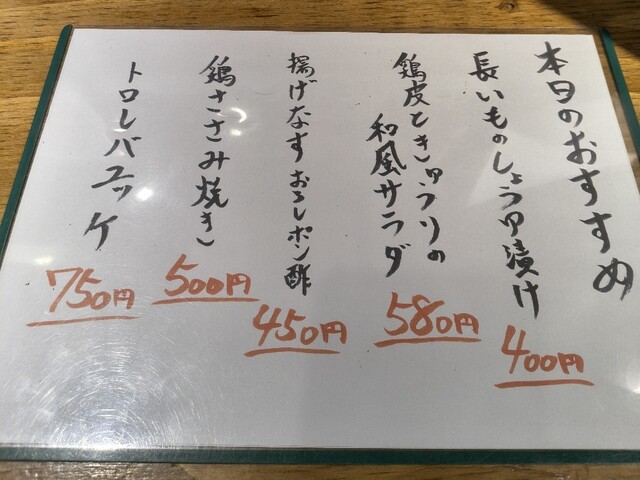 本日のおすすめ
長いものしょうゆ漬け
400円
鶏皮ときゅうりの
和風サラダ
580円
揚げなすおろしポン酢
450円
鶏ささみ焼き
500円
トロレバユッケ
750円